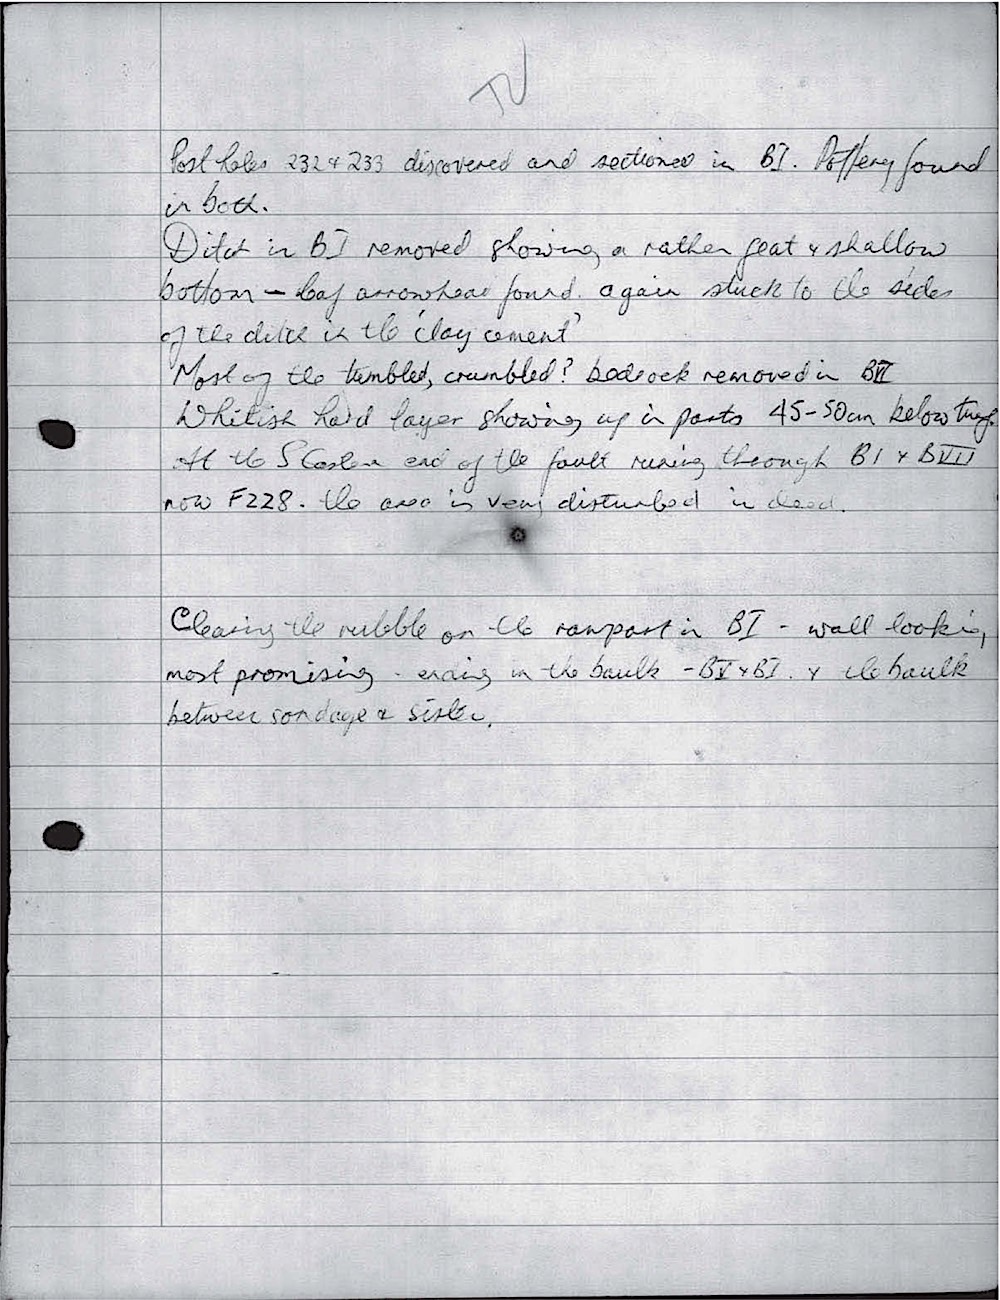 Post holes 232 & 233 discovered and sectioned in BI. Pottery found
in both.
Ditch in BI removed showing a rather & shallow
bottom – leaf arrowhead found. again stuck to the sides
of the ditch in the 'clay cement'
Most of the tumbled, crumbled? bedrock removed in
Whitish hard layer showing up in parts 45-50cm below turf.
At the end of the fault runing through BI & BVII
now F228. the area is very disturbed in deed.
Clearing the rubble on the rampart in BI - wall looking
most promising - ending in the baulk - BV & BI. & the baulk
between sondage & sister.